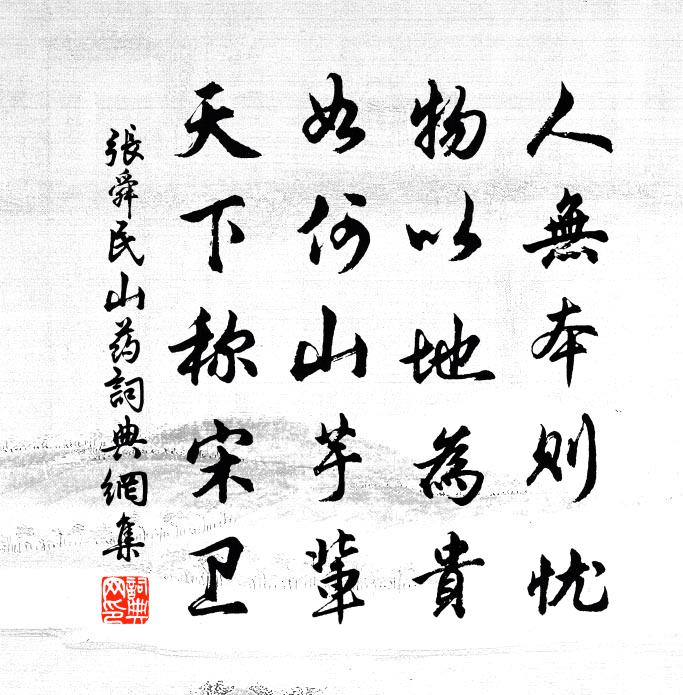 人無本则忧
物以地為貴
如何山芋輩
天下称宋卫
張舜民山药詞典網集
詞典网印